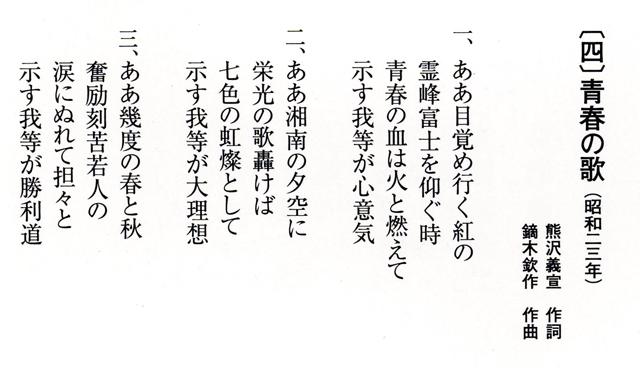 〔四〕青春の歌（昭和二三年）
熊沢義宣　作詞
鏑木欽作　作曲
一、ああ目覚め行く紅の
霊峰富士を仰ぐ時
青春の血は火と燃えて
示す我等が心意気
二、ああ湘南の夕空に
栄光の歌轟けば
七色の虹燦として
示す我等が大理想
三、ああ幾度の春と秋
奮励刻苦若人の
涙にぬれて担々と
示す我等が勝利道